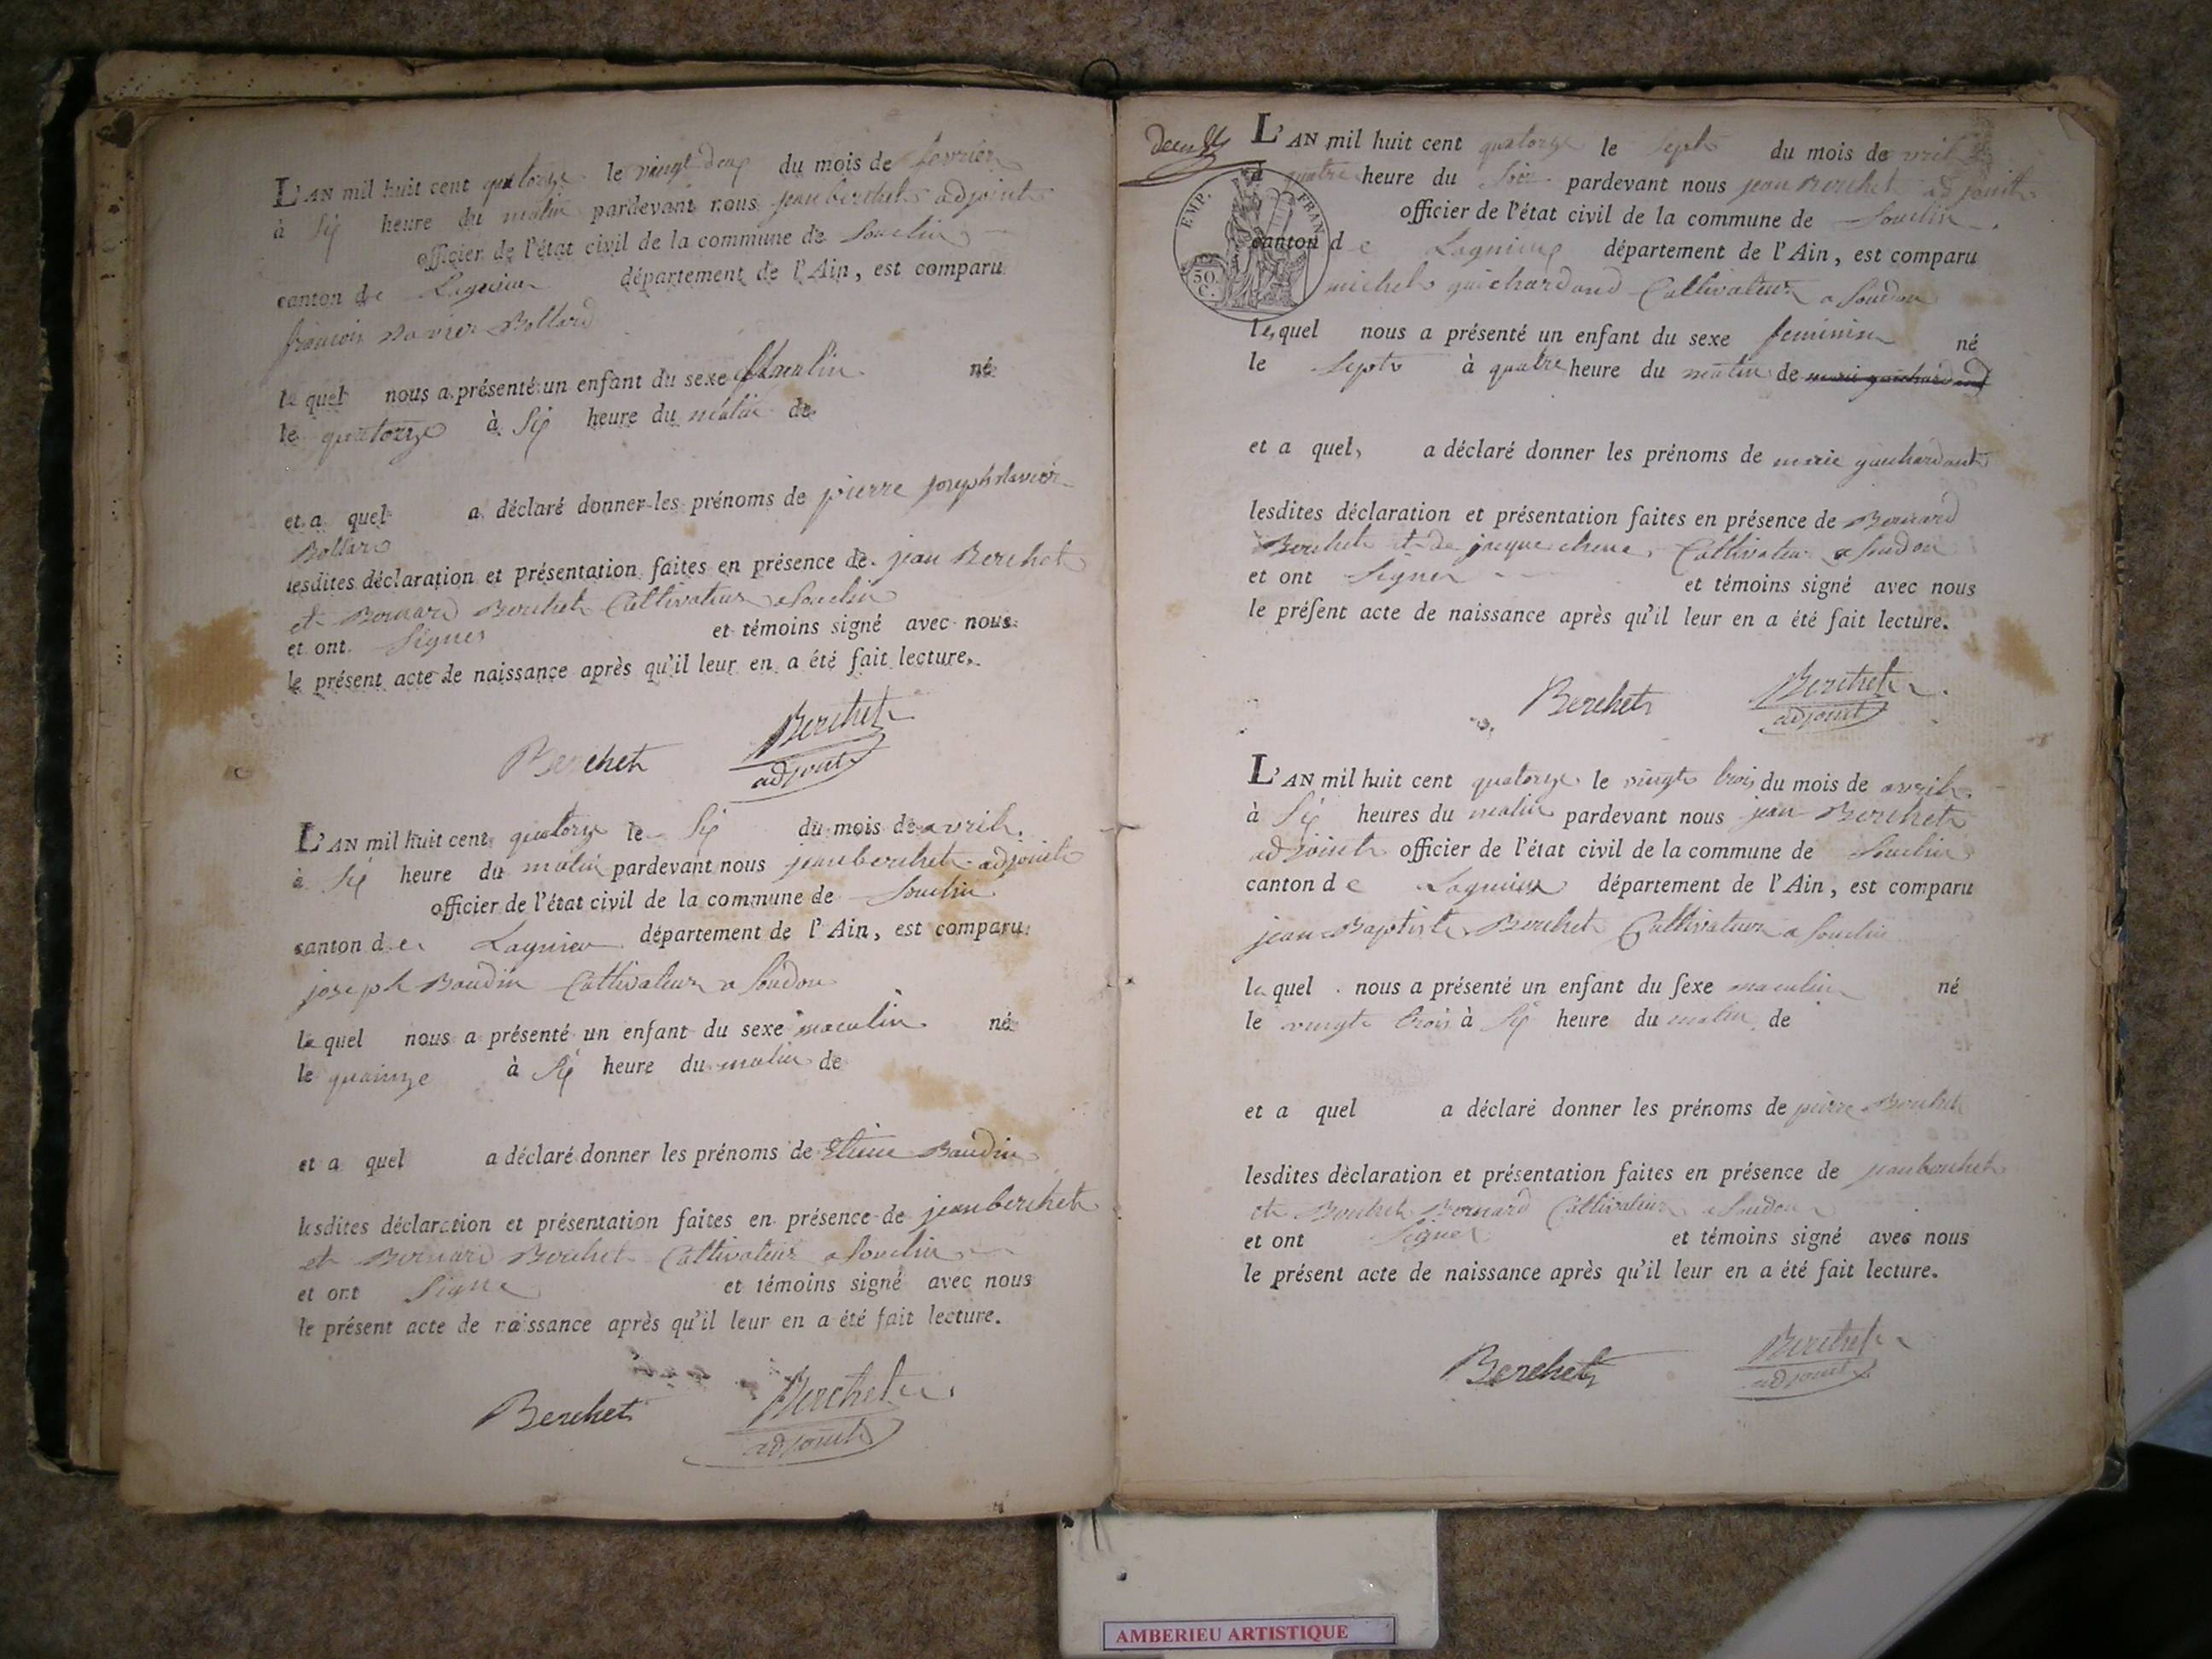 L'AN mil huit cent quatorze le vingt deux du mois de fevrier
à six heure du matin pardevant nous jean berchet adjoint
officier de l'état civil de la commune de Souclin
canton de Lagnieu département de l'Ain, est comparu
francois xavier Bollard
le quel nous a présenté un enfant du sexe né
le quatorze à six heure du matin de
et a quel a déclaré donner les prénoms de pierre joseph xavier
Bollard
lesdites déclaration et présentation faites en présence de jean Berchet
et Bernard Berchet Cultivateur a Souclin
et ont Signer et témoins signé avec nous
le présent acte de naissance après qu'il leur en a été fait lecture.
Berchet Berchet
adjoint
L'AN mil huit cent quatorze le six du mois de avril
à six heure du matin pardevant nous jean berchet adjoint
officier de l'état civil de la commune de Souclin
canton de Lagnieu département de l'Ain, est comparu
joseph Baudin Cultivateur a Soudon
le quel nous a présenté un enfant du sexe maculin né
le quainze à six heure du matin de
et a quel a déclaré donner les prénoms de Baudin
lesdites déclaration et présentation faites en présence de jean berchet
et Bernard Berchet Cultivateur a Souclin
et ont Signe et témoins signé avec nous
le présent acte de naissance après qu'il leur en a été fait lecture.
Berchet Berchet
adjoint
L'AN mil huit cent quatorze le sept du mois de avril
à quatre heure du soir pardevant nous jean Berchet adjoint
EMP. FRAN
officier de l'état civil de la commune de Souclin
canton de Lagnieu département de l'Ain, est comparu
50 C.
michel guichardand Cultivateur a Soudon
le quel nous a présenté un enfant du sexe feminin né
le sept à quatre heure du matin de marie guichardand
et a quel, a déclaré donner les prénoms de marie guichardant
lesdites déclaration et présentation faites en présence de Bernard
Berchet et de jacque Cultivateur a Soudon
et ont Signer et témoins signé avec nous
le préſent acte de naissance après qu'il leur en a été fait lecture.
Berchet Berchet
adjoint
L'AN mil huit cent quatorze le vingt trois du mois de avril
à six heures du matin pardevant nous jean Berchet
adjoint officier de l'état civil de la commune de Souclin
canton de Lagnieu département de l'Ain, est comparu
jean Baptiste Berchet Cultivateur a Souclin
le quel nous a présenté un enfant du ſexe maculin né
le vingt trois à six heure du matin de
et a quel a déclaré donner les prénoms de pierre Berchet
lesdites déclaration et présentation faites en présence de jean berchet
et Berchet Bernard Cultivateur a Soudon
et ont Signer et témoins signé avec nous
le présent acte de naissance après qu'il leur en a été fait lecture.
Berchet Berchet
adjoint
AMBERIEU ARTISTIQUE